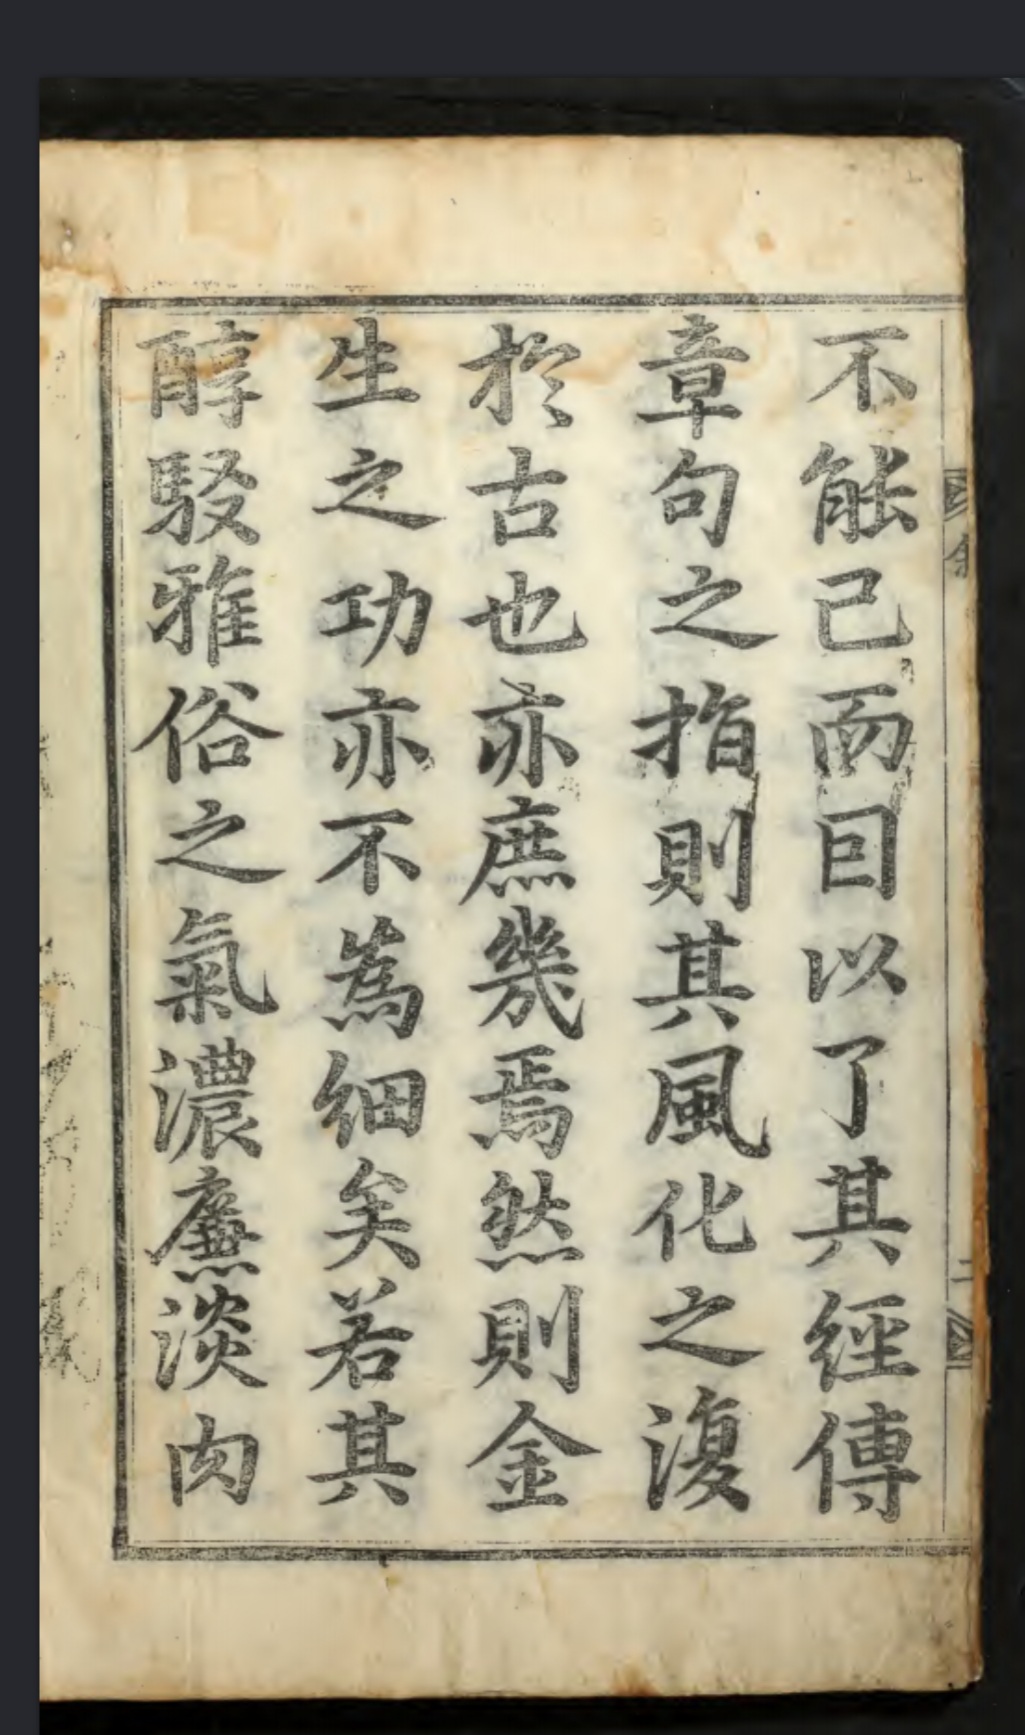 不能已而因以了其經傳
章句之指則其風化之復
於古也亦庶幾焉然則金
生之功亦不為細矣若其
醇駁雅俗之氣濃廉淡肉